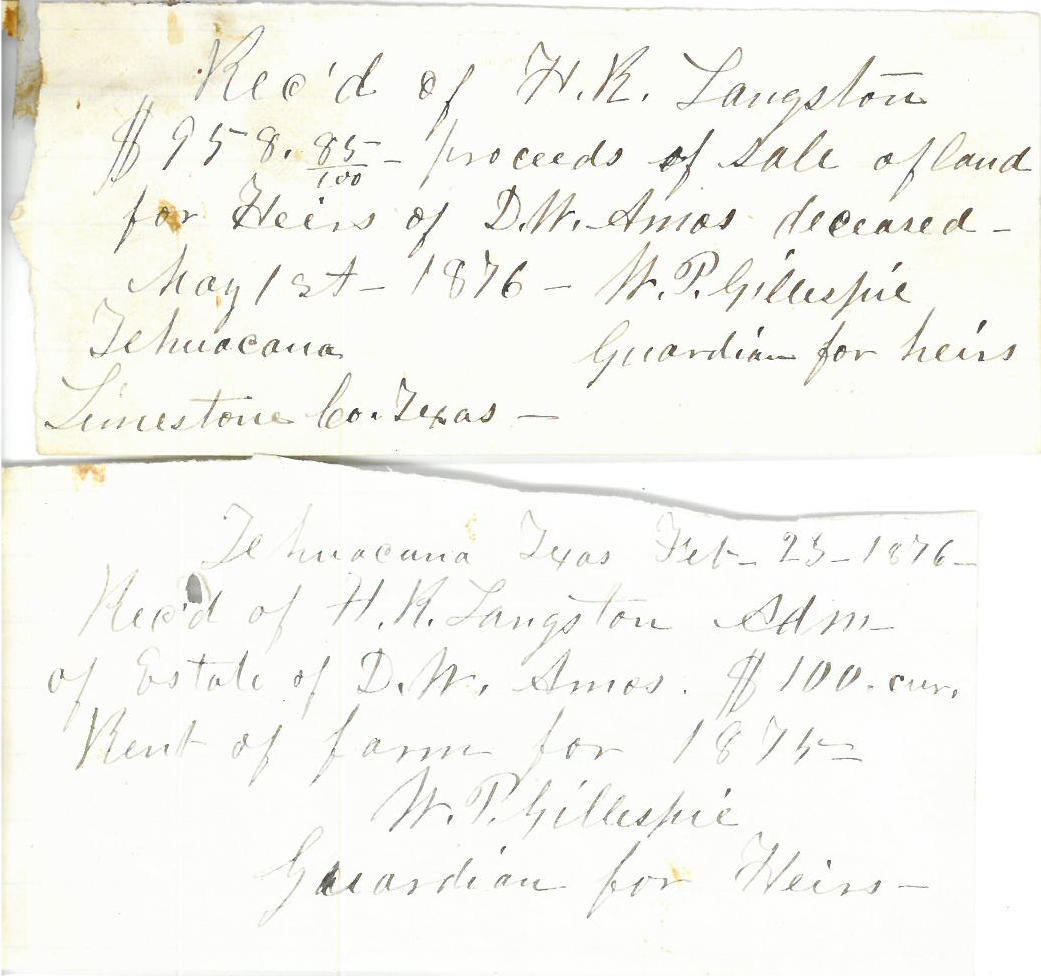 Rec'd of H.R. Langston
$958.85/100 – proceeds of sale of land
for Heirs of D.W. Amos deceased –
May 1st – 1876 – W.P. Gillespie
Tehuacana Guardian for heirs
Limestone Co. Texas –
Tehuacana Texas Feb – 23 – 1876 –
Rec'd of H.R. Langston Adm
of Estate of D.W. Amos. $100. cur.
Rent of farm for 1875 –
W.P. Gillespie
Guardian for Heirs –